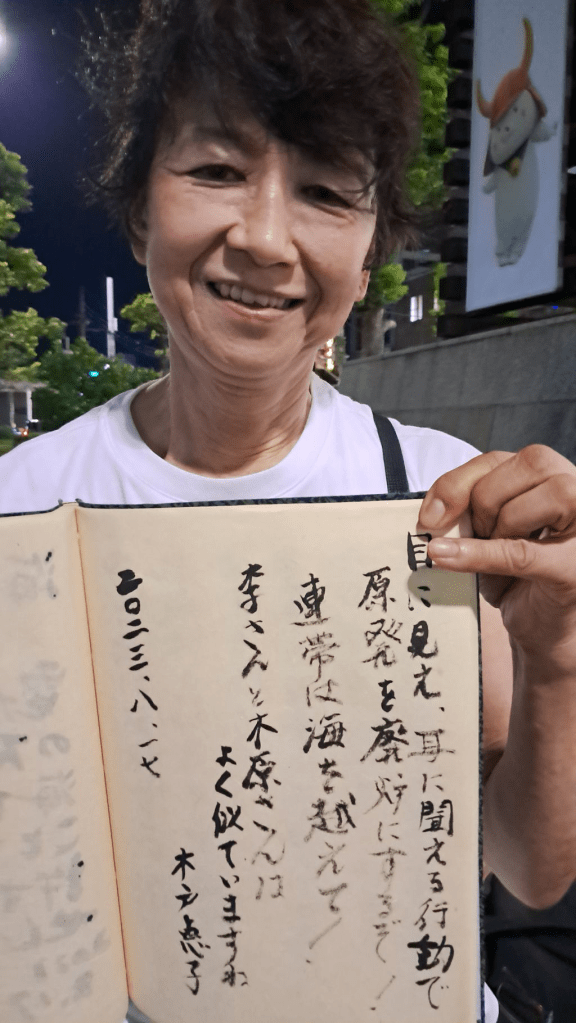 目に見え、耳に聞える行動で
原発を廃炉にするぞ!
連帯は海を越えて!
李さんと木原さんは
よく似ていますね
二〇二三、八、一七
木戸惠子